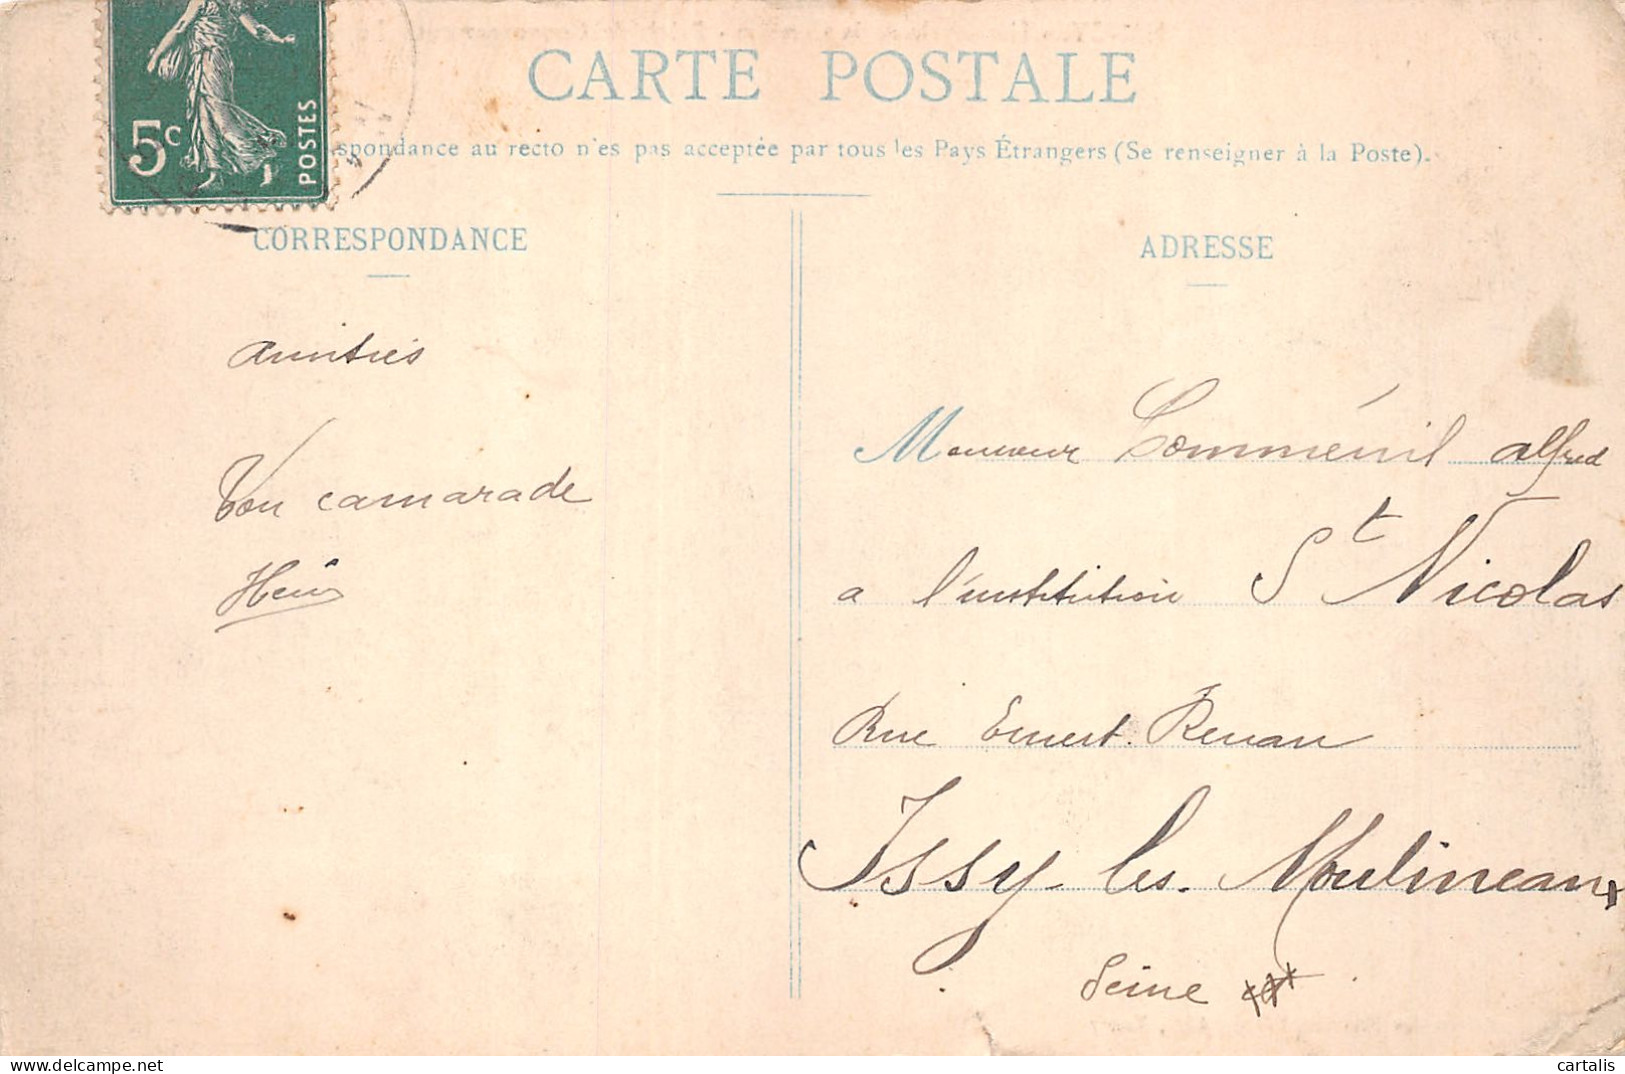 5c
POSTES
CARTE POSTALE
spondance au recto n'es pas acceptée par tous les Pays Étrangers (Se renseigner à la Poste).
CORRESPONDANCE
ADRESSE
Amitiés
Ton camarade
Monsieur Comménil Alfred
a l'institution St Nicolas
Rue Ernest Renan
Issy-les-Moulineaux
Seine
delcampe.net
cartalis